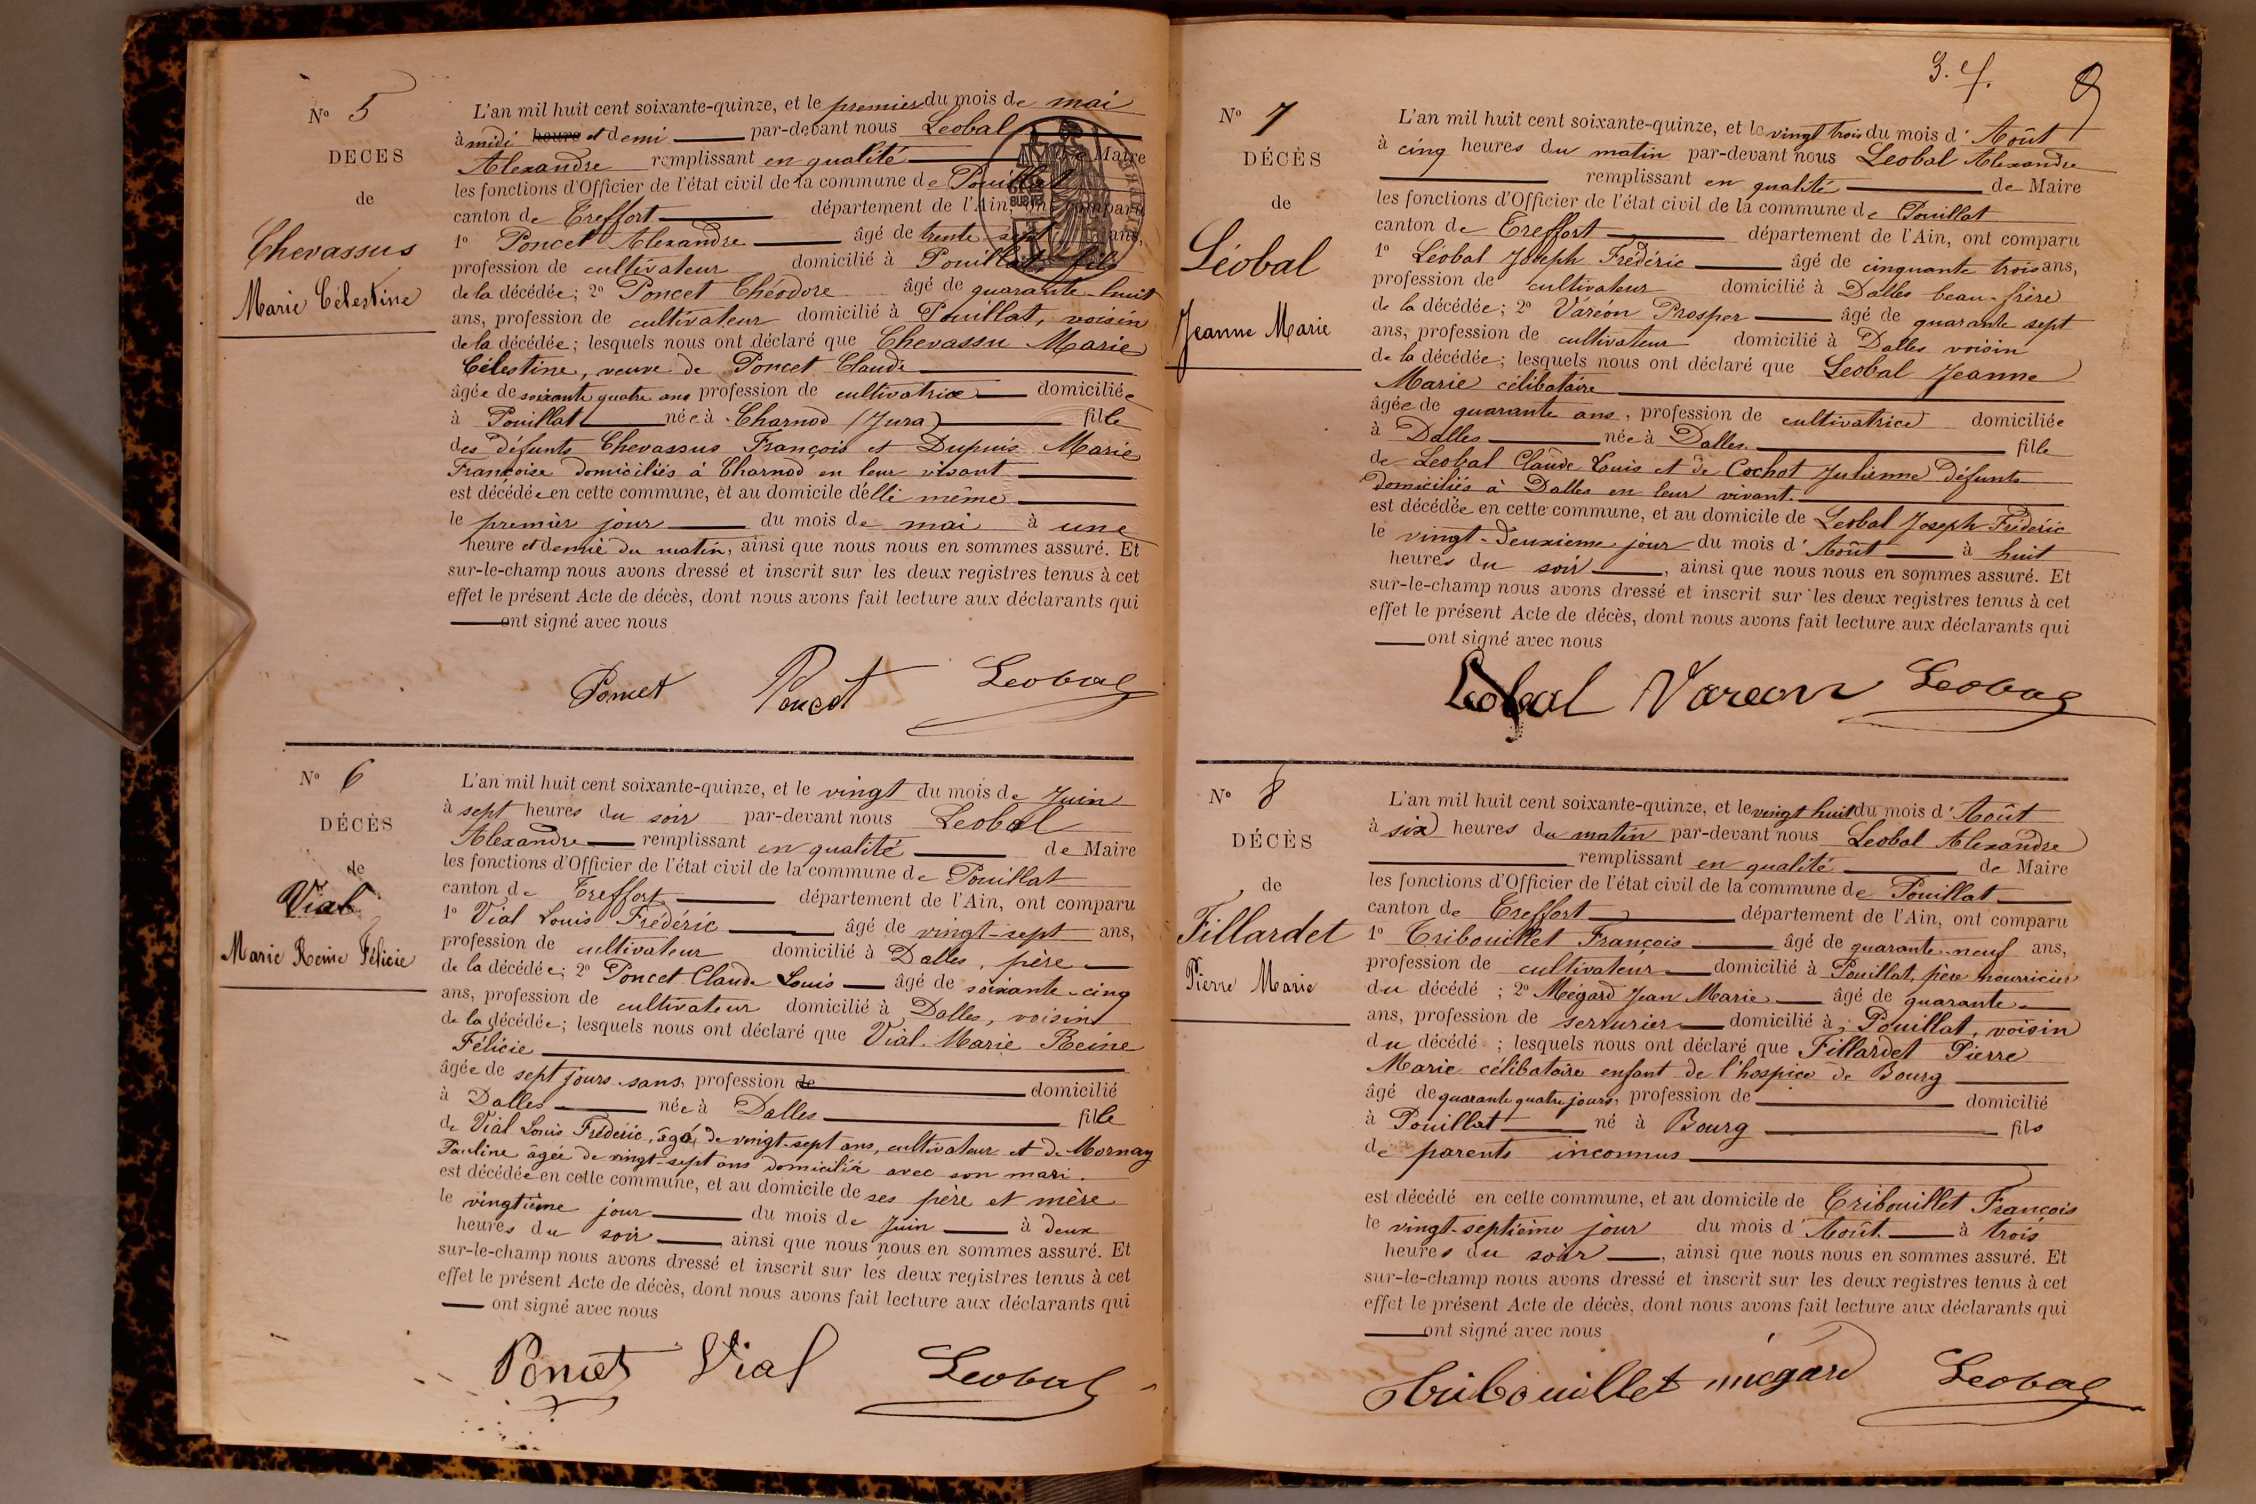 Nº 5
DÉCÈS
de
Chevassus
Marie Célestine
L'an mil huit cent soixante-quinze, et le premier du mois de mai
à midi heure et demi par-devant nous Leobal
Alexandre remplissant en qualité de Maire
les fonctions d'Officier de l'état civil de la commune de Pouillat
canton de Treffort département de l'Ain, ont comparu
1º Poncet Alexandre âgé de trente sept ans,
profession de cultivateur domicilié à Pouillat, fils
de la décédée; 2º Poncet Théodore âgé de quarante-huit
ans, profession de cultivateur domicilié à Pouillat, voisin
de la décédée; lesquels nous ont déclaré que Chevassu Marie
Célestine, veuve de Poncet Claude
âgée de soixante quatre ans profession de cultivatrice domiciliée
à Pouillat née à Charnod (Jura) fille
des défunts Chevassus François et Dupuis Marie
Françoise domiciliés à Charnod en leur vivant
est décédée en cette commune, et au domicile d'elle même
le premier jour du mois de mai à une
heure et demie du matin, ainsi que nous nous en sommes assuré. Et
sur-le-champ nous avons dressé et inscrit sur les deux registres tenus à cet
effet le présent Acte de décès, dont nous avons fait lecture aux déclarants qui
ont signé avec nous
Poncet Poncet Leobal
Nº 6
DÉCÈS
de
Vial
Marie Reine Félicie
L'an mil huit cent soixante-quinze, et le vingt du mois de Juin
à sept heures du soir par-devant nous Leobal
Alexandre remplissant en qualité de Maire
les fonctions d'Officier de l'état civil de la commune de Pouillat
canton de Treffort département de l'Ain, ont comparu
1º Vial Louis Frédéric âgé de vingt-sept ans,
profession de cultivateur domicilié à Dalles, père
de la décédée; 2º Poncet Claude Louis âgé de soixante-cinq
ans, profession de cultivateur domicilié à Dalles, voisin
de la décédée; lesquels nous ont déclaré que Vial Marie Reine
Félicie
âgée de sept jours sans profession de domicilié
à Dalles née à Dalles fille
de Vial Louis Frédéric, âgé de vingt-sept ans, cultivateur et de Mornay
Pauline agée de vingt-sept ans domiciliée avec son mari.
est décédée en cette commune, et au domicile de ses père et mère
le vingtième jour du mois de Juin à deux
heures du soir ainsi que nous nous en sommes assuré. Et
sur-le-champ nous avons dressé et inscrit sur les deux registres tenus à cet
effet le présent Acte de décès, dont nous avons fait lecture aux déclarants qui
ont signé avec nous
Poncet Vial Leobal
9
Nº 7
DÉCÈS
de
Léobal
Jeanne Marie
L'an mil huit cent soixante-quinze, et le vingt trois du mois d'Août
à cinq heures du matin par-devant nous Leobal Alexandre
remplissant en qualité de Maire
les fonctions d'Officier de l'état civil de la commune de Pouillat
canton de Treffort département de l'Ain, ont comparu
1º Léobal Joseph Frédéric âgé de cinquante trois ans,
profession de cultivateur domicilié à Dalles beau-frère
de la décédée; 2º Varéon Prosper âgé de quarante sept
ans, profession de cultivateur domicilié à Dalles voisin
de la décédée; lesquels nous ont déclaré que Leobal Jeanne
Marie célibataire
âgée de quarante ans, profession de cultivatrice domiciliée
à Dalles née à Dalles fille
de Leobal Claude Louis et de Cochot Julienne défunts
domiciliés à Dalles en leur vivant.
est décédée en cette commune, et au domicile de Leobal Joseph Frédéric
le vingt-deuxieme jour du mois d'Août à huit
heures du soir, ainsi que nous nous en sommes assuré. Et
sur-le-champ nous avons dressé et inscrit sur les deux registres tenus à cet
effet le présent Acte de décès, dont nous avons fait lecture aux déclarants qui
ont signé avec nous
Leobal Vareon Leobal
Nº 8
DÉCÈS
de
Fillardet
Pierre Marie
L'an mil huit cent soixante-quinze, et le vingt huit du mois d'Août
à six heures du matin par-devant nous Leobal Alexandre
remplissant en qualité de Maire
les fonctions d'Officier de l'état civil de la commune de Pouillat
canton de Treffort département de l'Ain, ont comparu
1º Tribouillet François âgé de quarante-neuf ans,
profession de cultivateur domicilié à Pouillat, père nourricier
du décédé ; 2º Mégard Jean Marie âgé de quarante
ans, profession de serrurier domicilié à Pouillat, voisin
du décédé ; lesquels nous ont déclaré que Fillardet Pierre
Marie célibataire enfant de l'hospice de Bourg
âgé de quarante quatre jours, profession de domicilié
à Pouillat né à Bourg fils
de parents inconnus
est décédé en cette commune, et au domicile de Tribouillet François
le vingt-septième jour du mois d'Août à trois
heures du soir, ainsi que nous nous en sommes assuré. Et
sur-le-champ nous avons dressé et inscrit sur les deux registres tenus à cet
effet le présent Acte de décès, dont nous avons fait lecture aux déclarants qui
ont signé avec nous
Tribouillet mégard Leobal